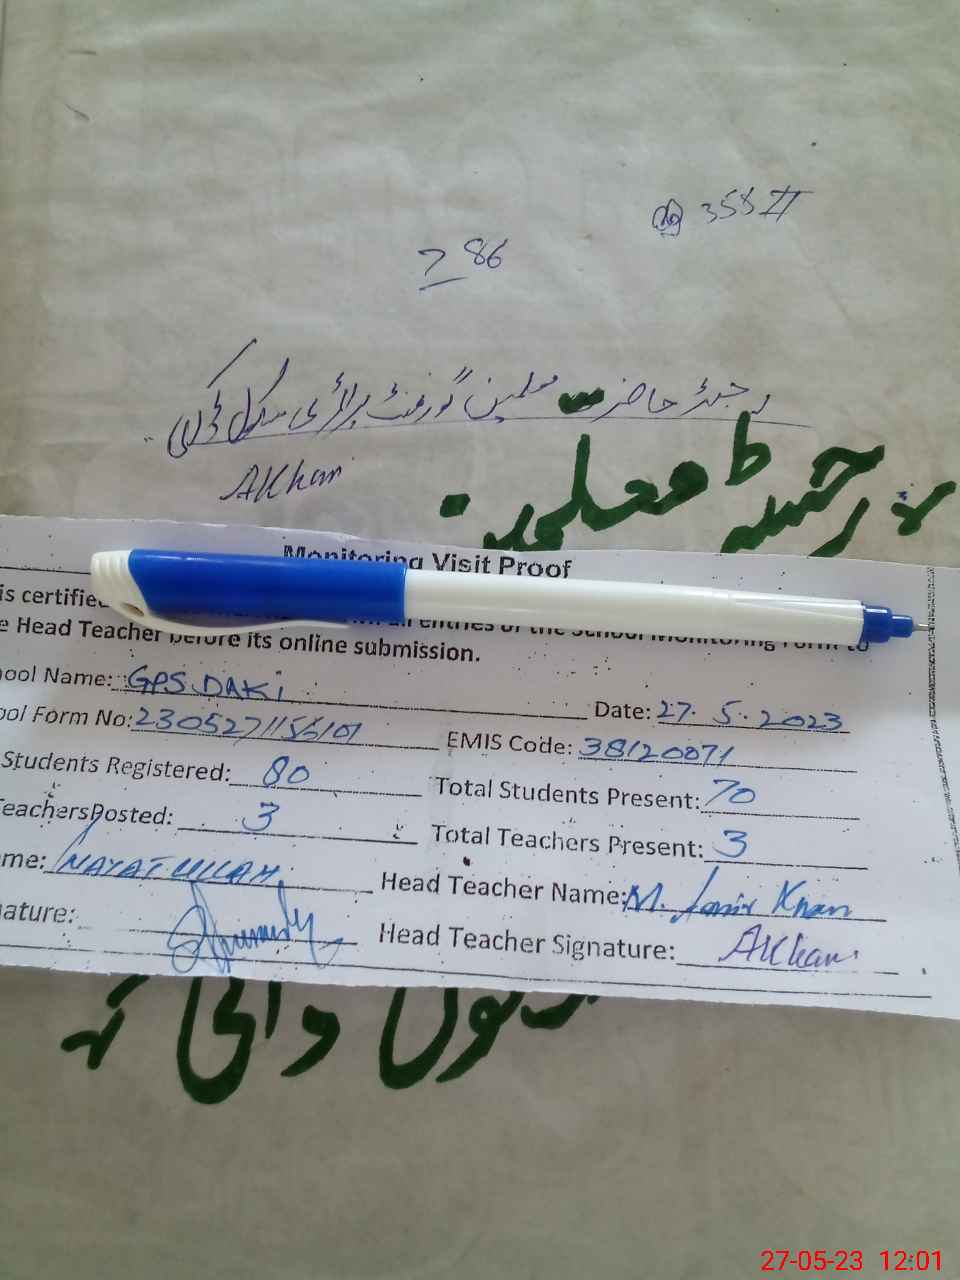 358 II
786
رجسٹر حاضری معلمین گورنمنٹ پرائمری سکول ڈکی
AKhan
رجسٹر معلمین
Monitoring Visit Proof
is certified all entries of the School Monitoring Form to
e Head Teacher before its online submission.
ool Name: GPS DAKI Date: 27.5.2023
ool Form No: 230527115610 EMIS Code: 38120071
Students Registered: 80 Total Students Present: 70
TeachersPosted: 3 Total Teachers Present: 3
me: INAYAT ULLAH Head Teacher Name: M. Khan
nature: Head Teacher Signature: AKhan
27-05-23 12:01